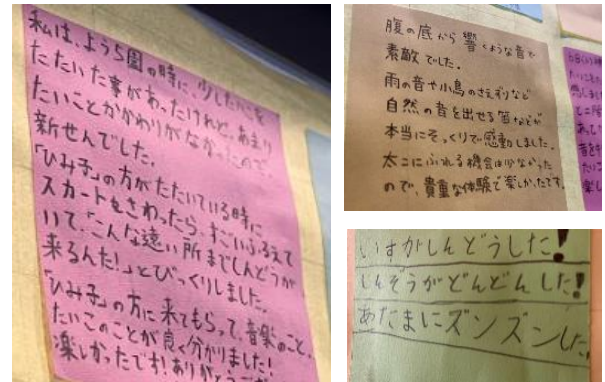 私は、よう5園の時に、少したいこを
たたいた事があったけれど、あまり
たいことかかわりがなかったので
新せんでした。
「ひみ子」の方がたたいている時に
スカートをさわったら、すごいふるえて
いて、「こんな遠い所までしんどうが
来るんだ!」とびっくりしました。
「ひみ子」の方に来てもらって、音楽のこと、
たいこのことが良く分かりました!
楽しかったです!ありがとうござ
腹の底から響くような音で
素敵でした。
雨の音や小鳥のさえずりなど
自然の音を出せる笛などが
本当にそっくりで感動しました。
太こにふれる機会は少なかった
ので、貴重な体験で楽しかったです。
いすがしんどうした!
しんぞうがどんどんした!
あたまにズンズンした。